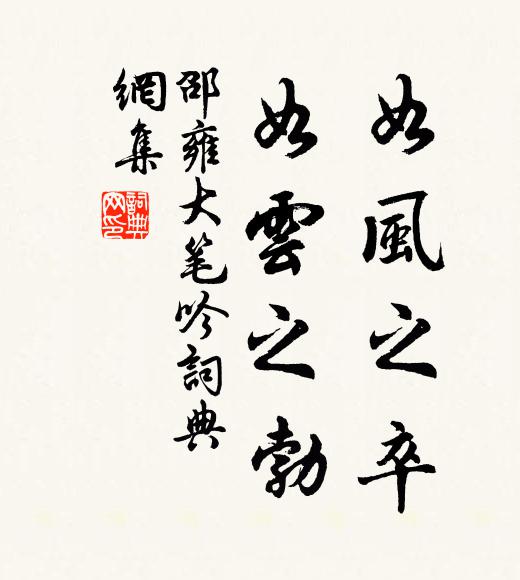 如風之卒
如雲之勃
邵雍大笔吟詞典
網集
詞典
网印